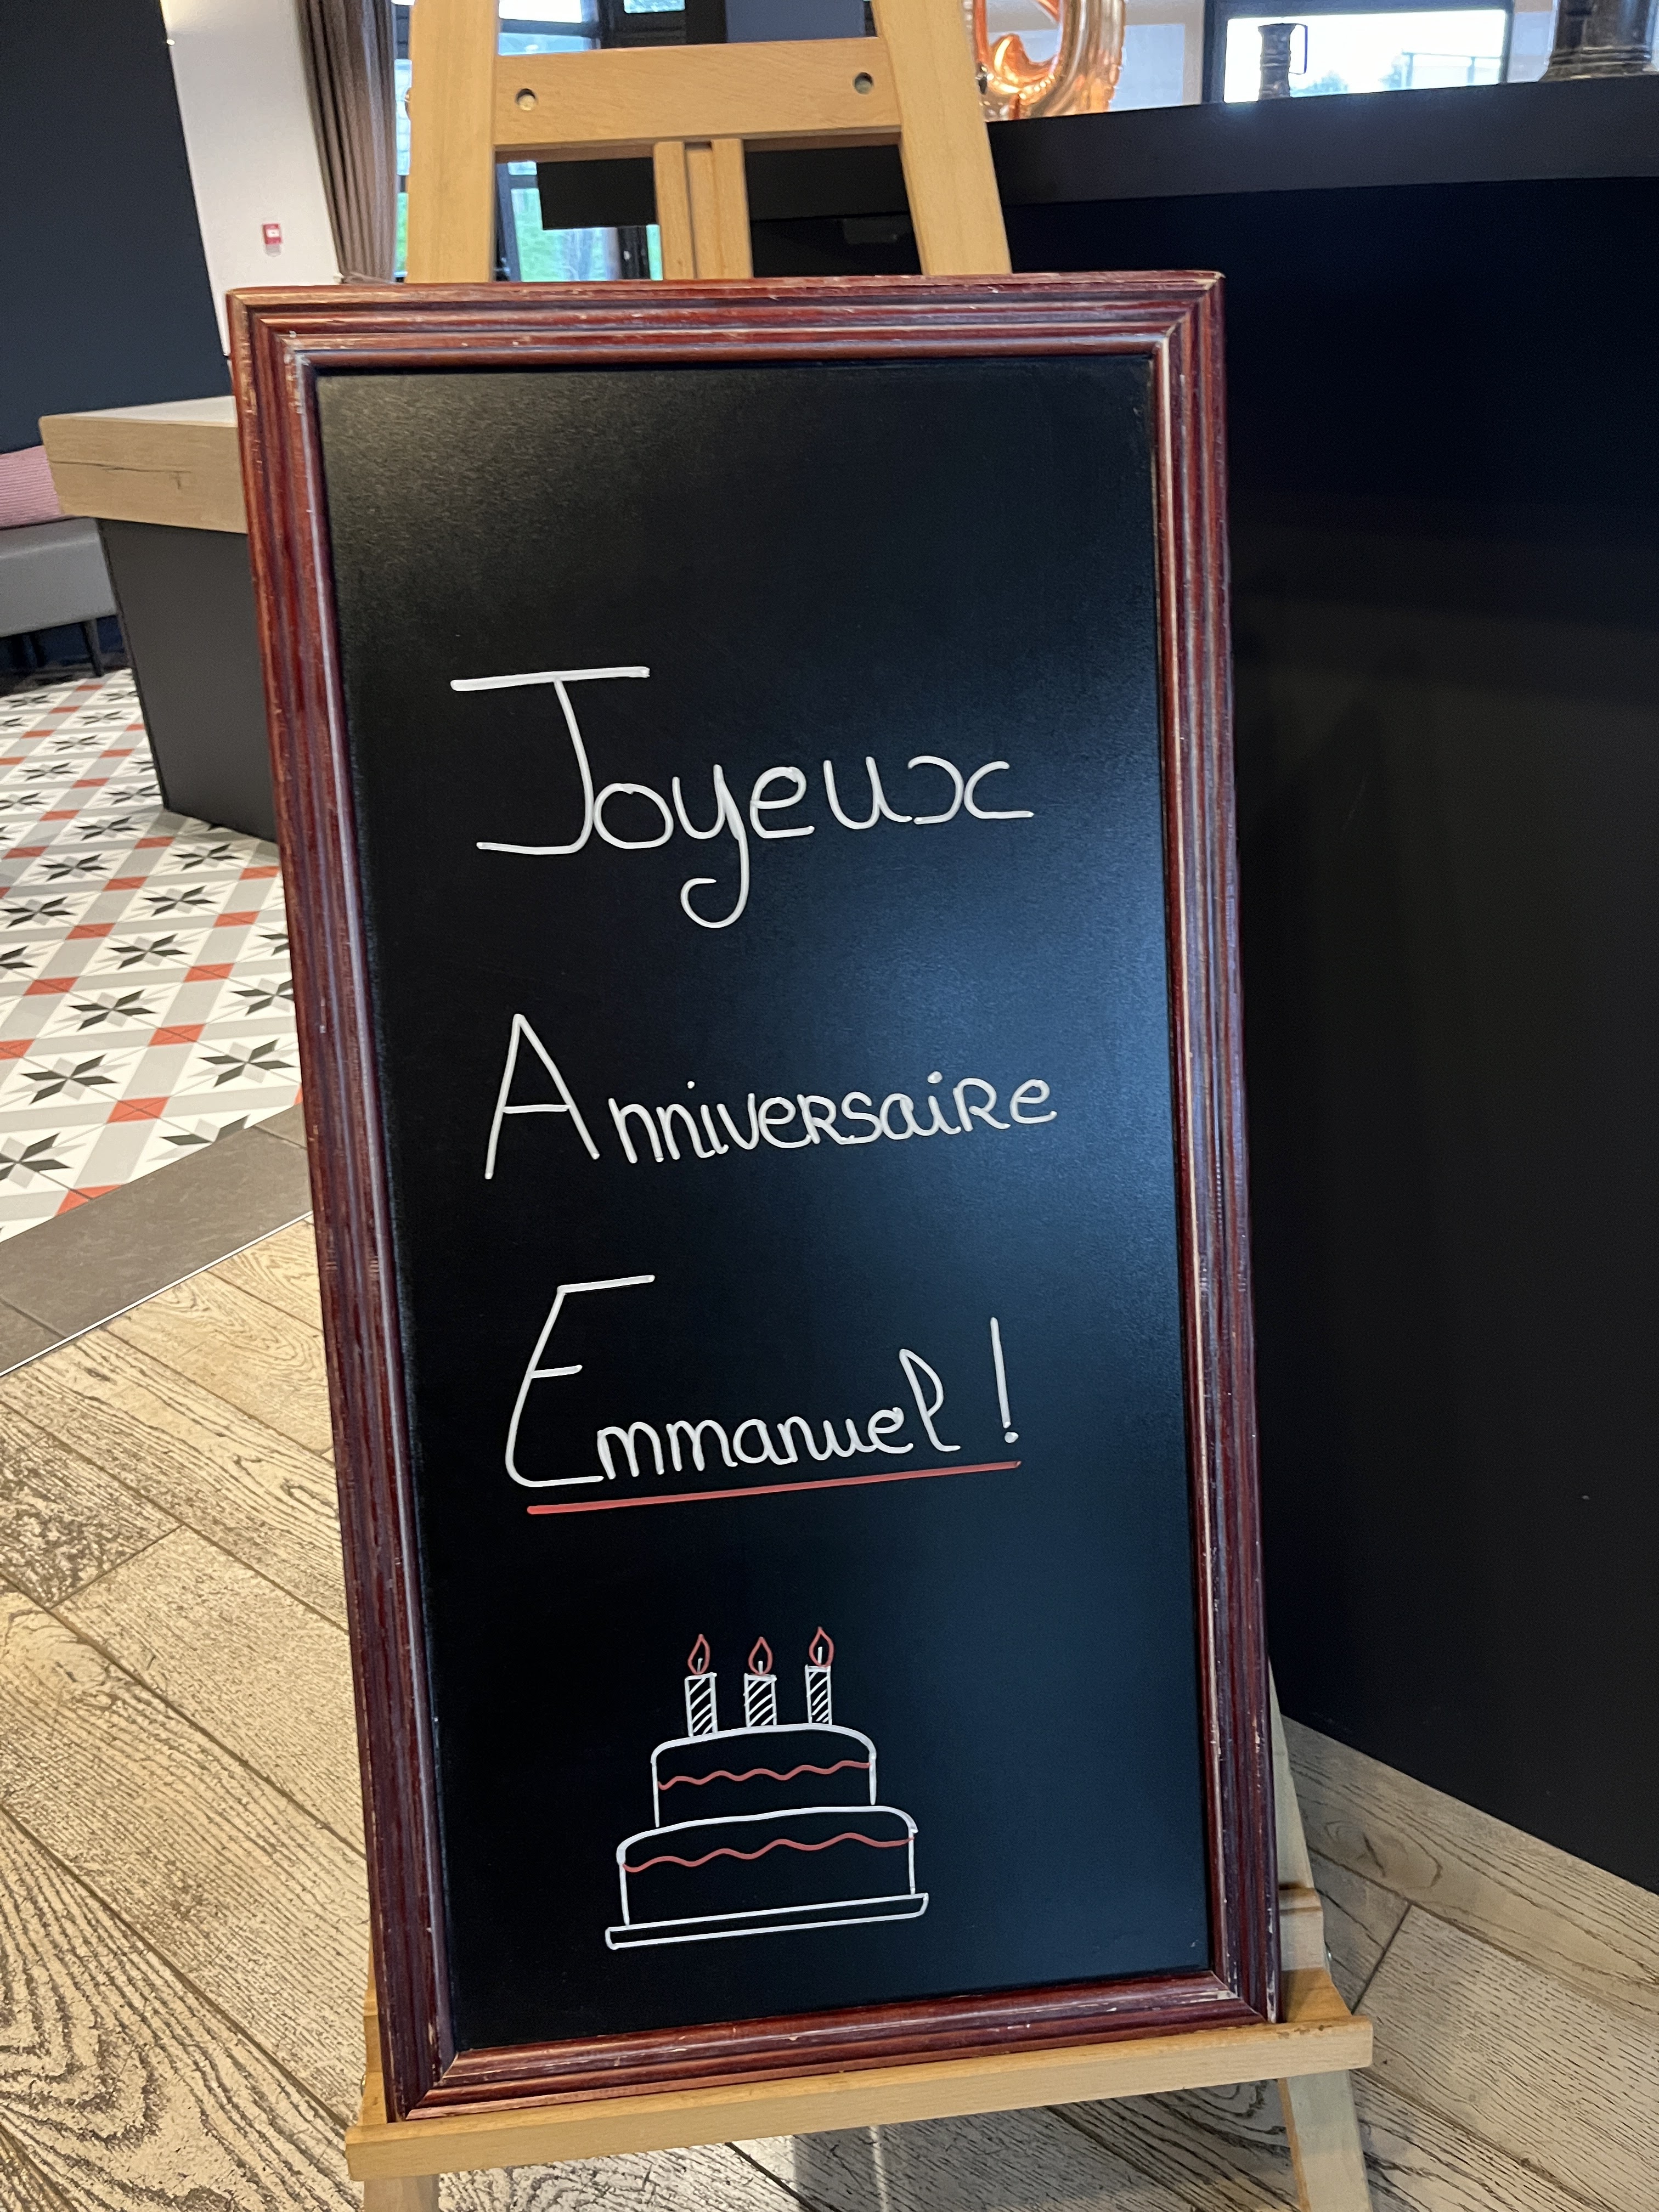 Joyeux
Anniversaire
Emmanuel !